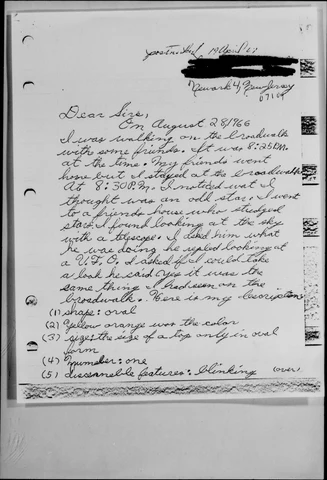 postmarked 19 April 67
Newark 4, New Jersey
07104
Dear Sirs,
On August 28/966
I was walking on the broadwalk
with some friends. It was 8:25 P.M.
at the time. My friends went
home but I stayed at the broadwalk
At 8:30 P.M. I noticed wat I
thought was an odd star. I went
to a friends house who studyed
stars I found looking at the sky
with a
he was doing he repled looking at
a U.F.O. I asked if I could take
a look he said yes it was the
same thing I had seen on the
broadwalk. Here is my descriptions
(1) shape: oval
(2) Yellow orange was the color
(3) size: the size of a top only in oval
form
(4) number: one
(5) discernible features: blinking (over)